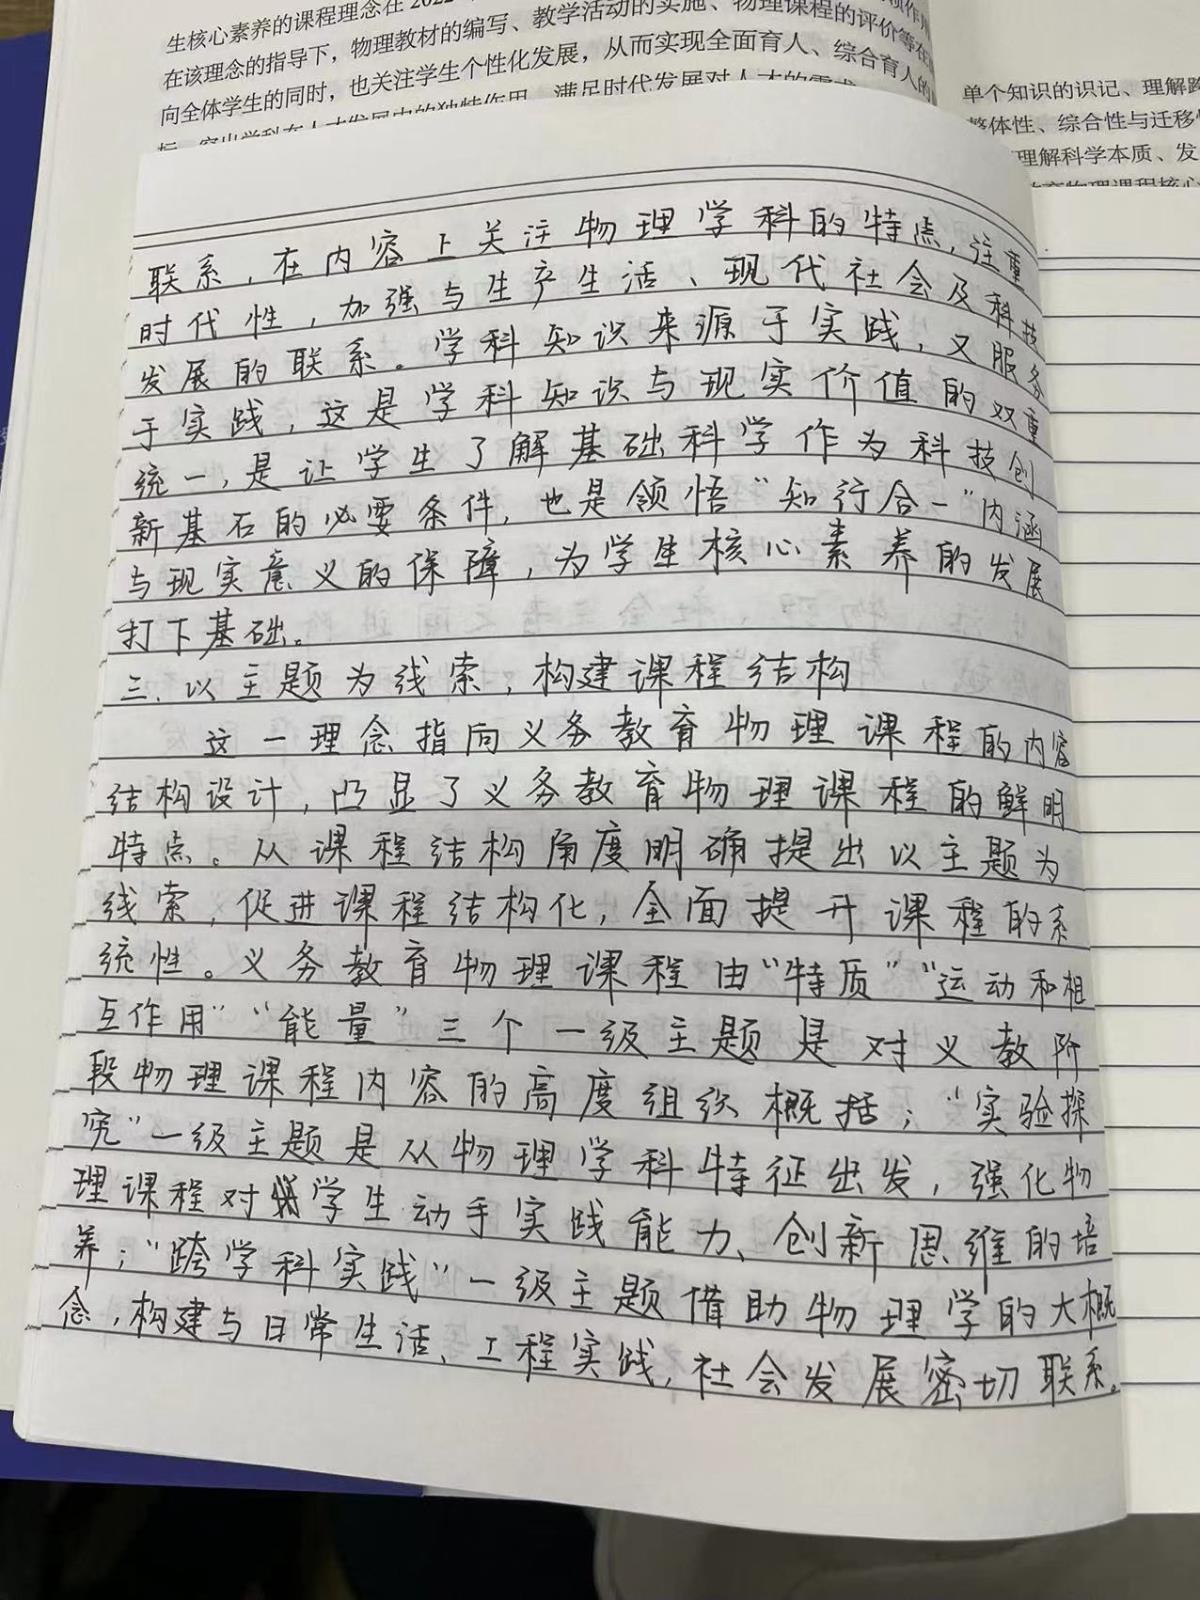 生核心素养的课程理念在2022
在该理念的指导下，物理教材的编写、教学活动的实施、物理课程的评价等在
向全体学生的同时，也关注学生个性化发展，从而实现全面育人、综合育人的
单个知识的识记、理解
整体性、综合性与迁移
理解科学本质、发
联系，在内容上关注物理学科的特点，注重
时代性，加强与生产生活、现代社会及科技
发展的联系。学科知识来源于实践，又服务
于实践，这是学科知识与现实价值的双重
统一，是让学生了解基础科学作为科技创
新基石的必要条件，也是领悟“知行合一”内涵
与现实意义的保障，为学生核心素养的发展
打下基础。
三.以主题为线索，构建课程结构
这一理念指向义务教育物理课程的内容
结构设计，凸显了义务教育物理课程的鲜明
特点。从课程结构角度明确提出以主题为
线索，促进课程结构化，全面提升课程的系
统性。义务教育物理课程由“特质”“运动和相
互作用”“能量”三个一级主题是对义教阶
段物理课程内容的高度组织概括；“实验探
究”一级主题是从物理学科特征出发，强化物
理课程对学生动手实践能力、创新思维的培
养；“跨学科实践”一级主题借助物理学的大概
念，构建与日常生活、工程实践，社会发展密切联系。